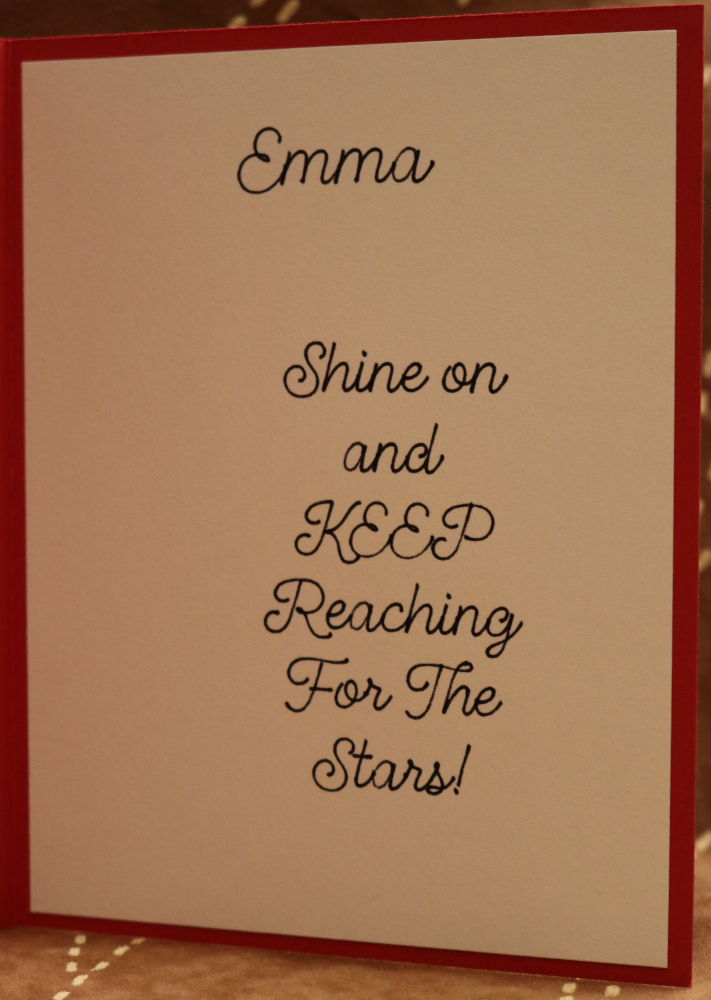 Emma
Shine on
and
KEEP
Reaching
For The
Stars!